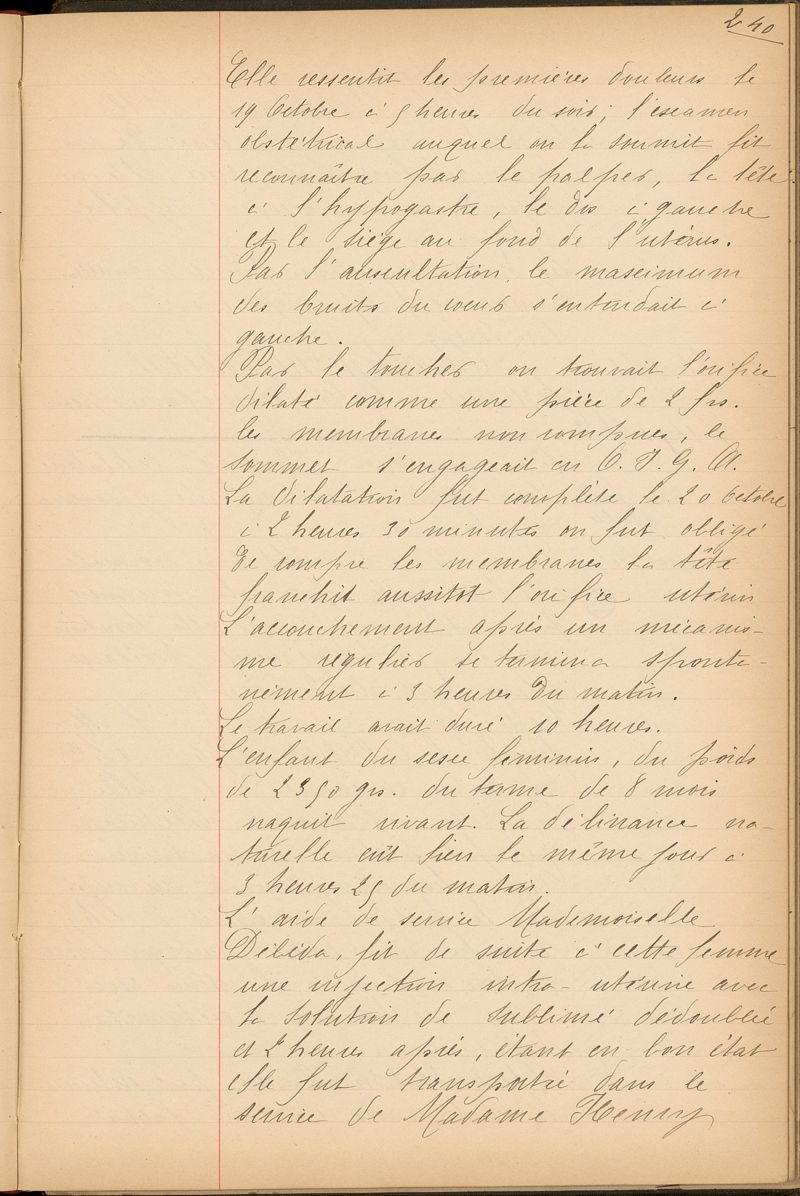 240
Elle ressentit les premières douleurs le
19 Octobre à 5 heures du soir; l'examen
obstétrical auquel on la soumit fit
reconnaître par le palper, la tête
à l'hypogastre, le dos à gauche
et le siège au fond de l'utérus.
Par l'auscultation, le maximum
des bruits du coeur s'entendait à
gauche.
Par le toucher on trouvait l'orifice
dilaté comme une pièce de 2 frs.
les membranes non rompues, le
sommet s'engageait en O. I. G. A.
La dilatation fut complète le 20 Octobre
à 2 heures 30 minutes on fut obligé
de rompre les membranes la tête
franchit aussitot l'orifice utérin
L'accouchement après un mécanis-
me régulier se termina sponta-
nément à 3 heures du matin.
Le travail avait duré 10 heures.
L'enfant du sexe féminin, du poids
de 2350 grs. du terme de 8 mois
naquit vivant. La délivrance na-
turelle eût lieu le même jour à
3 heures 25 du matin.
L'aide de service Mademoiselle
Débéda, fit de suite à cette femme
une injection intra-utérine avec
la solution de sublimé dédoublée
et 2 heures après, étant en bon état
elle fut transportée dans le
service de Madame Henry